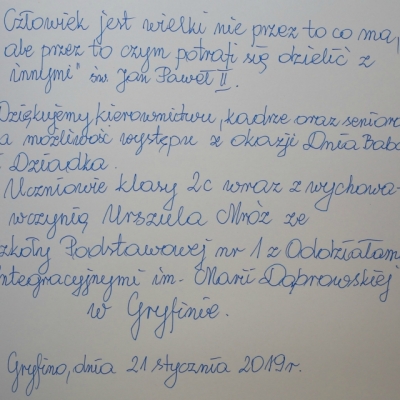 Człowiek jest wielki nie przez to co ma,
ale przez to czym potrafi się dzielić z
innymi" św. Jan Paweł II.
Dziękujemy kierownictwu, kadrze oraz senioro
za możliwość występu z okazji Dnia Babc
i Dziadka.
Uczniowie klasy 2c wraz z wychowa-
wczynią Urszula Mróz ze
zkoły Podstawowej nr 1 z Oddziałam
ntegracyjnymi im. Marii Dąbrowskiej
w Gryfinie.
Gryfino, dnia 21 stycznia 2019r.